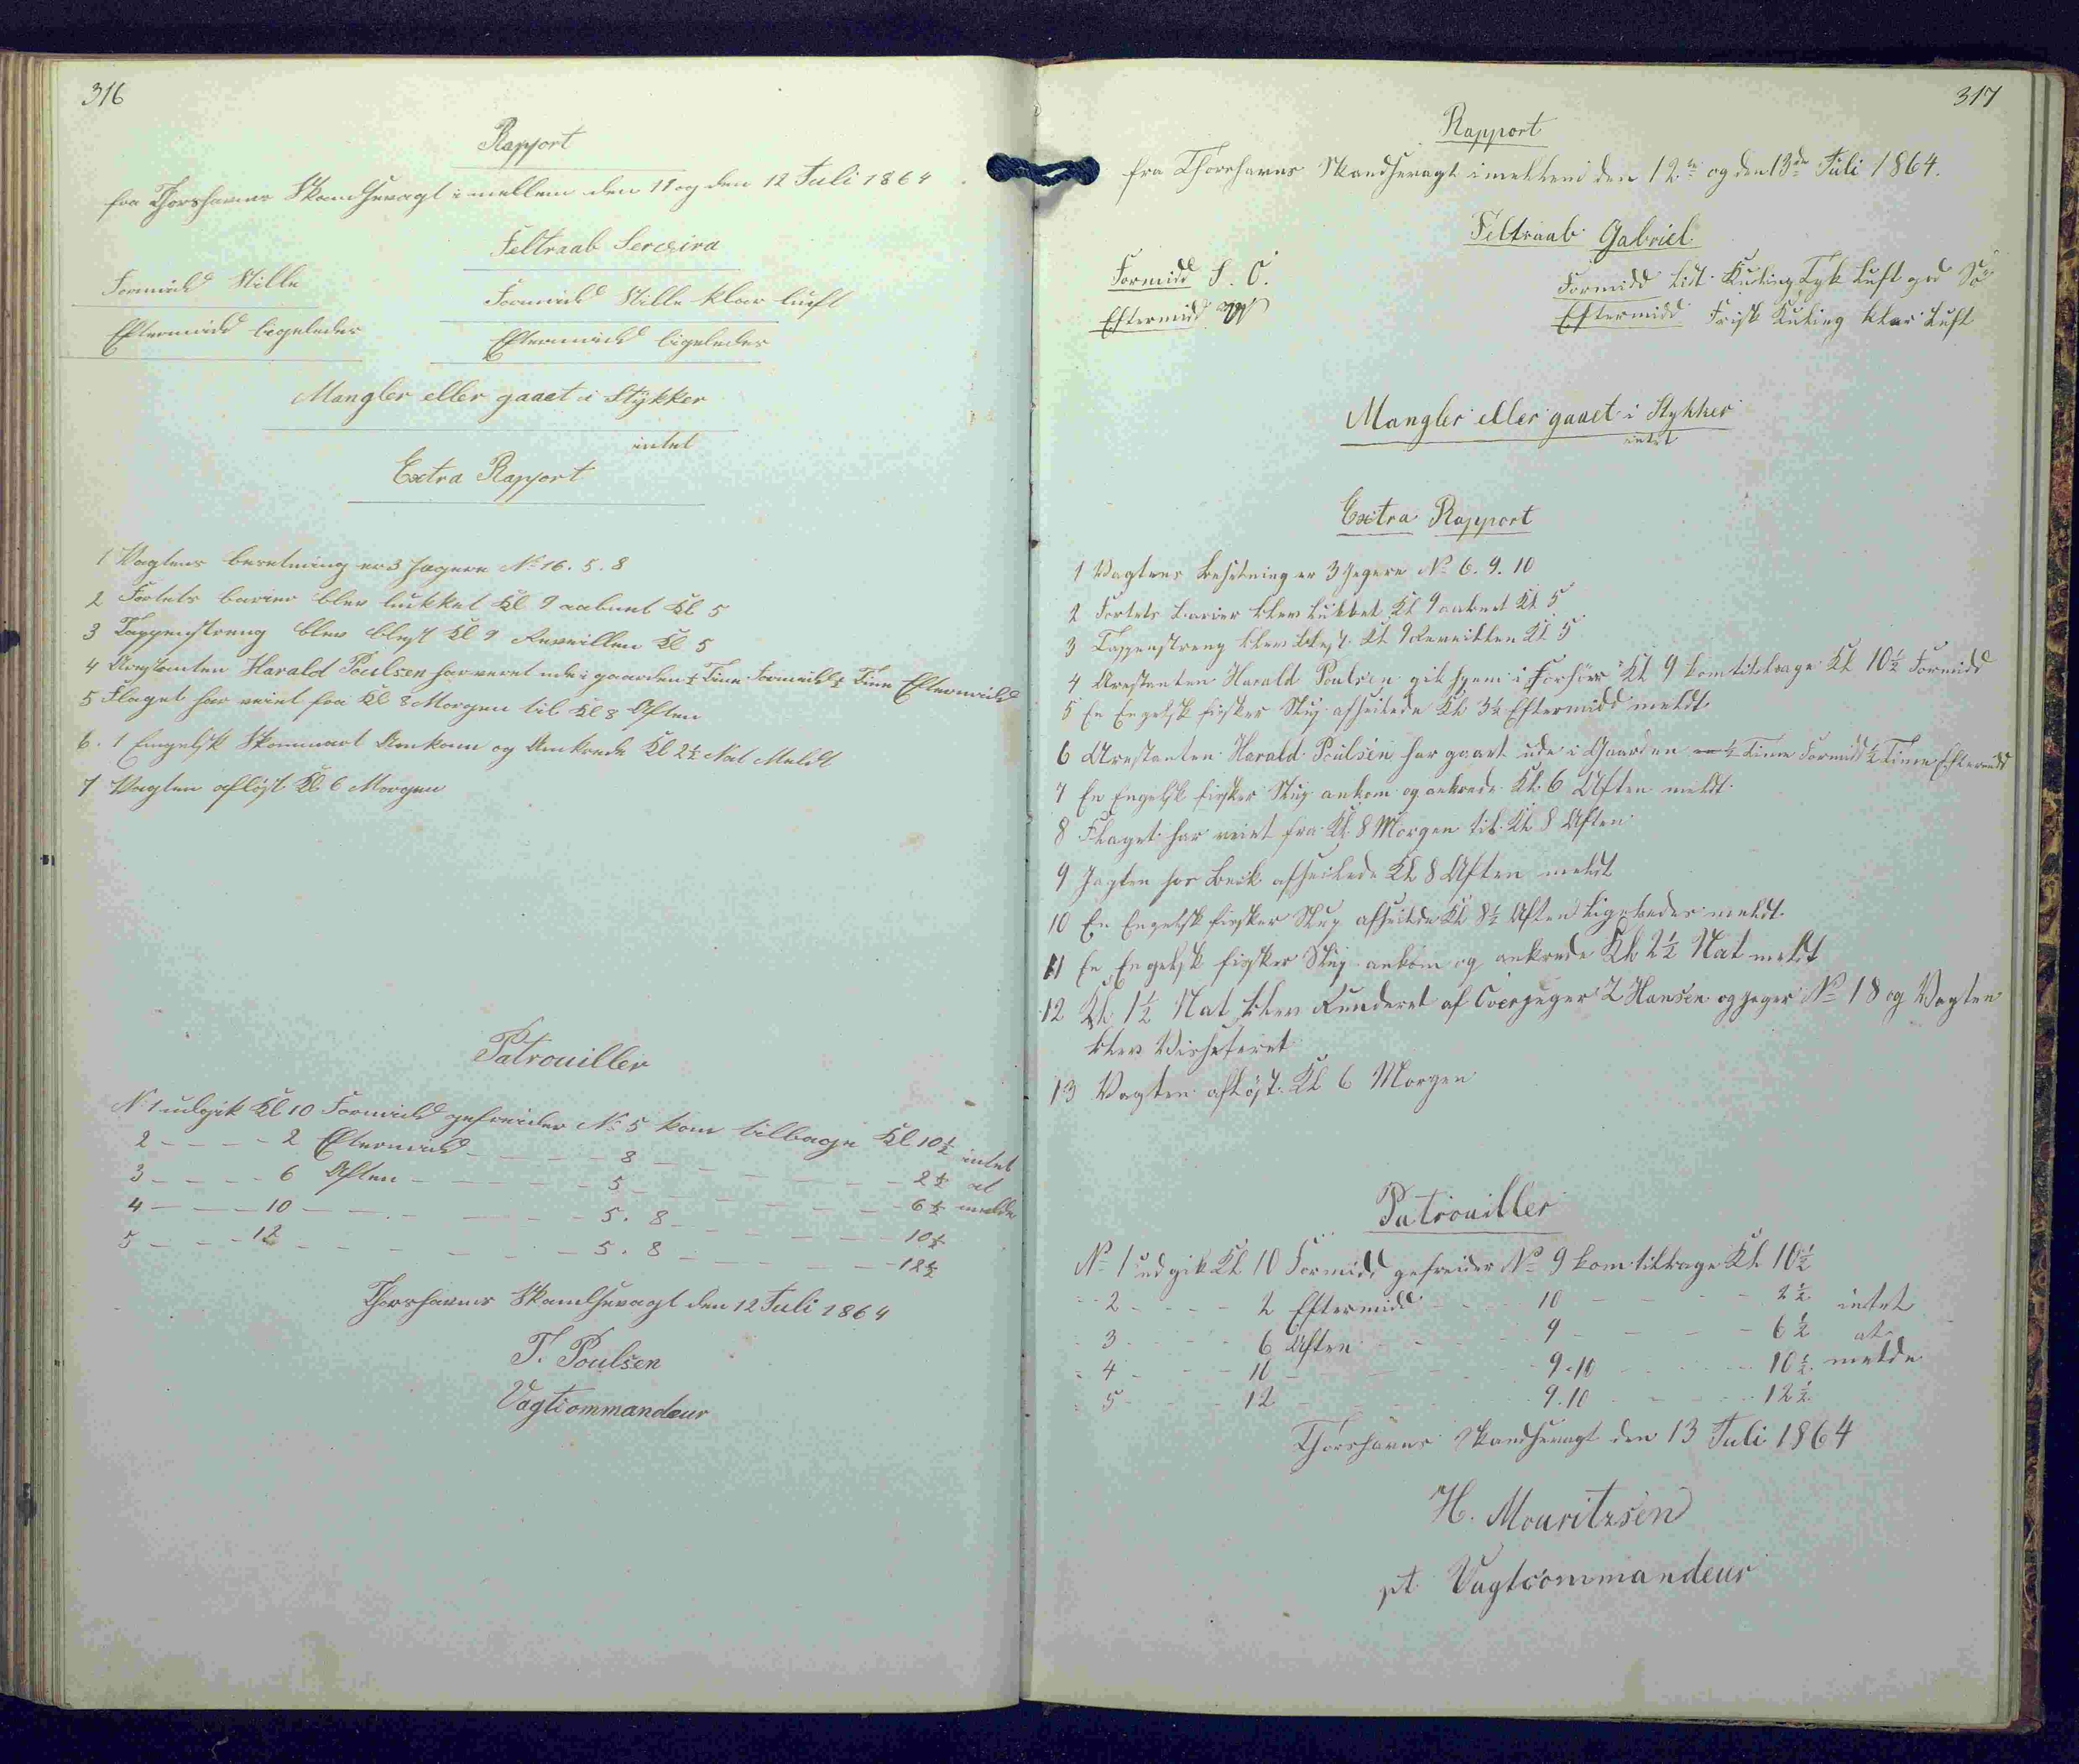 316
Rapport
fra Thorshavns Skandsevagt imellem den 11 og den 12 Juli 1864
Feltraab
Formidd Stille
Formidd Stille klar luft
Eftermidd ligeledes
Eftermidd ligeledes
Mangler eller gaaet i Stykker
intet
Extra Rapport
1 Vagtens besetning er 3 Jægere No 16. 5. 8
2 Fortets barier blev lukket Kl 9 aabnet Kl 5
3 Tappenstreng blev blest Kl 9 Reveillen Kl 5
4 Arestanten Harald Poulsen har veret ude i gaarden ½ Time Formidd ½ Time Eftermidd
5 Flaget har veiet fra Kl 8 Morgen til Kl 8 Aften
6. 1 Engelsk Ankom og Ankrede Kl 2½ Nat Meldt
7 Vagten afløst Kl 6 Morgen
Patrouiller
No 1 udgik Kl 10 Formidd gefreider No 5 kom tilbage Kl 10½ intet
2 - - - - 2 Eftermidd - - - - 8 - - - - - 2½ at
3 - - - - 6 Aften - - - - - 5 - - - - - 6½ melde
4 - - - 10 - - - - - - 5. 8 - - - - - 10½
5 - - - 12 - - - - - - 5. 8 - - - - - 12½
Thorshavns Skandsevagt den 12 Juli 1864
T. Poulsen
Vagtcommandeur
317
Rapport
fra Thorshavns Skandsevagt imellem den 12te og den 13de Juli 1864.
Feltraab Gabriel
Formidd S. O.
Formidd Lidt Kuling Tyk Luft god Sø
Eftermidd
Eftermidd Frisk Kuling klar Luft
Mangler eller gaaet i Stykker
intet
Extra Rapport
1 Vagtens Besetning er 3 Jegere No 6. 9. 10
2 Fortets Barier blev Lukket Kl 9 aabnet Kl 5
3 Tappenstreng blev blest Kl 9 Reveillen Kl 5
4 Arestanten Harald Poulsen gik hjem i Forhörr Kl 9 kom tilbage Kl 10½ Formidd
5 En Engelsk fisker Slup afseilede Kl 3½ Eftermidd meldt
6 Arestanten Harald Poulsen har gaaet ude i Gaarden ½ Time Formidd ½ Time Eftermidd
7 En Engelsk fisker Slup ankom og ankrede Kl. 6 Aften meldt
8 Flaget har veiet fra Kl. 8 Morgen til Kl 8 Aften
9 Jagten hos Beck afseilede Kl 8 Aften meldt
10 En Engelsk fisker Slup afseilede Kl 8½ Aften ligeledes meldt
11 En Engelsk fisker Slup ankom og ankrede Kl. 2½ Nat meldt
12 Kl. 1½ Nat blev Runderet af Overjeger Z Hansen og Jeger No 18 og Vagten
blev Visiteret
13 Vagten afløst Kl 6 Morgen
Patrouiller
No 1 udgik Kl 10 Formidd gefreider No 9 kom tilbage Kl 10½
2 - - - - 2 Eftermidd - - - 10 - - - - 2½ intet
3 - - - - 6 Aften - - - - 9 - - - - 6½ at
4 - - - - 10 - - - - - 9.10 - - - - 10½ melde
5 - - - - 12 - - - - - 9.10 - - - - 12½
Thorshavns Skandsevagt den 13 Juli 1864
H. Mouritzsen
pt Vagtcommandeur